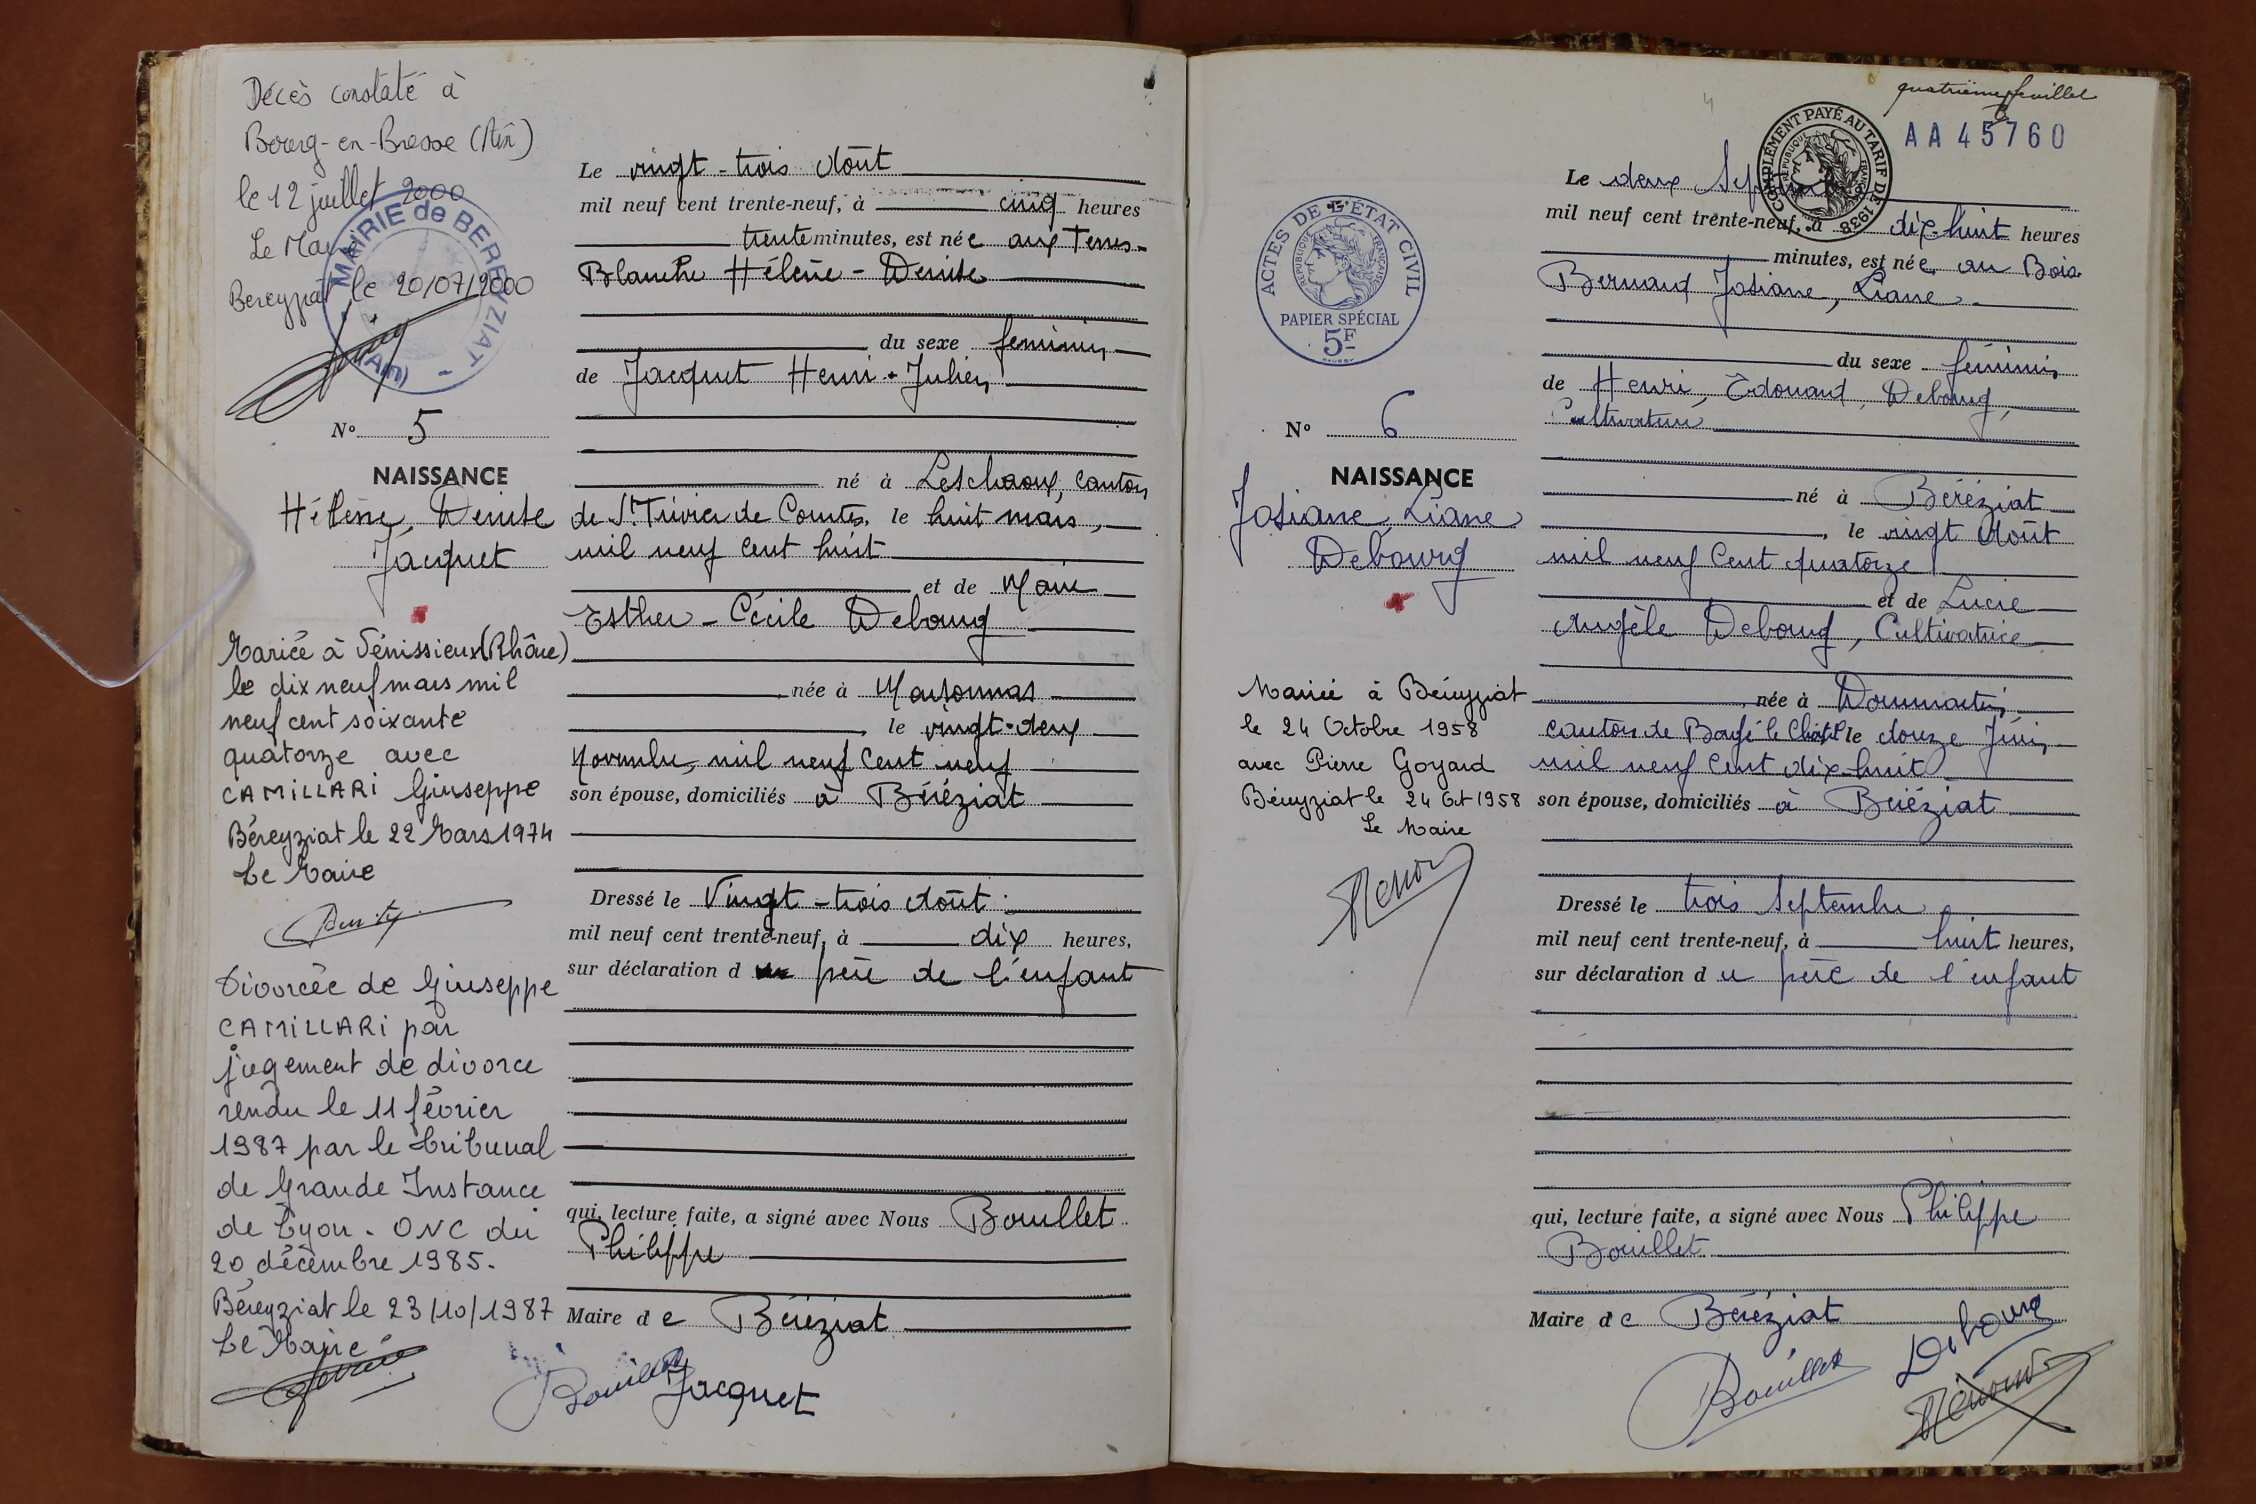 Décès constaté à
Bourg-en-Bresse (Ain)
le 12 juillet 2000
Le Maire
Bereyziat le 20/07/2000
MAIRIE de BEREYZIAT
(Ain)
N° 5
NAISSANCE
Hélène, Denise
Jacquet
Mariée à Vénissieux (Rhône)
le dix neuf mars mil
neuf cent soixante
quatorze avec
CAMILLARI Giuseppe
Béreyziat le 22 Mars 1974
Le Maire
Divorcée de Giuseppe
CAMILLARI par
jugement de divorce
rendu le 11 février
1987 par le tribunal
de Grande Instance
de Lyon. ONC du
20 décembre 1985.
Béreyziat le 23/10/1987
Le Maire
Le vingt-trois Août
mil neuf cent trente-neuf, à cinq heures
trente minutes, est née aux Terres-
Blanche Hélène - Denise
du sexe féminin
de Jacquet Henri-Julien
né à Leschaoux, canton
de St Trivier de Courtes, le huit mars,
mil neuf cent huit
et de Marie
Esther - Cécile Debourg
née à Marsonnas
le vingt-deux
Novembre, mil neuf cent neuf
son épouse, domiciliés à Béréziat
Dressé le Vingt-trois Août
mil neuf cent trente-neuf, à dix heures,
sur déclaration d père de l'enfant
qui, lecture faite, a signé avec Nous Bouillet
Philippe
Maire de Béréziat
Bouillet Jacquet
quatrième feuillet
4
AA 45760
COMPLÉMENT PAYÉ AU TARIF DE 1938
RÉPUBLIQUE FRANÇAISE
ACTES DE L'ÉTAT CIVIL
RÉPUBLIQUE FRANÇAISE
PAPIER SPÉCIAL
5F
N° 6
NAISSANCE
Josiane, Liane
Debourg
Mariée à Béreyziat
le 24 Octobre 1958
avec Pierre Goyard
Béreyziat le 24 Oct 1958
Le Maire
Le deux Septembre
mil neuf cent trente-neuf, à dix-huit heures
minutes, est née, au Bois-
Bernard Josiane, Liane
du sexe féminin
de Henri, Edouard, Debourg,
Cultivateur
né à Béréziat
, le vingt Août
mil neuf cent quatorze
et de Lucie
Angèle Debourg, Cultivatrice
née à Dommartin
canton de Bagé le Châtel le douze Juin
mil neuf cent dix-huit
son épouse, domiciliés à Béréziat
Dressé le trois Septembre
mil neuf cent trente-neuf, à huit heures,
sur déclaration du père de l'enfant
qui, lecture faite, a signé avec Nous Philippe
Bouillet
Maire de Béréziat
Bouillet Debourg